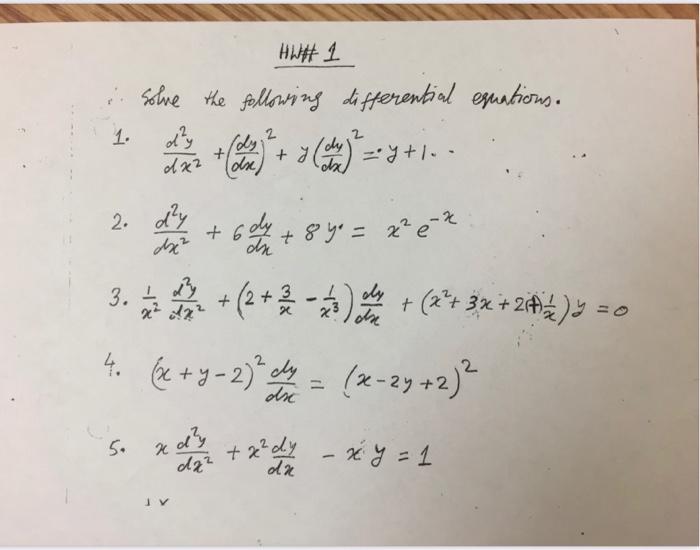 HW# 1
Solve the following differential equations.
1. d²y/dx² + (dy/dx)² + y(dy/dx)² = y + 1.
2. d²y/dx² + 6 dy/dx + 8y = x² e^-x
3. 1/x² d²y/dx² + (2 + 3/x - 1/x³) dy/dx + (x² + 3x + 2 + 1/x) y = 0
4. (x + y - 2)² dy/dx = (x - 2y + 2)²
5. x d²y/dx² + x² dy/dx - x y = 1